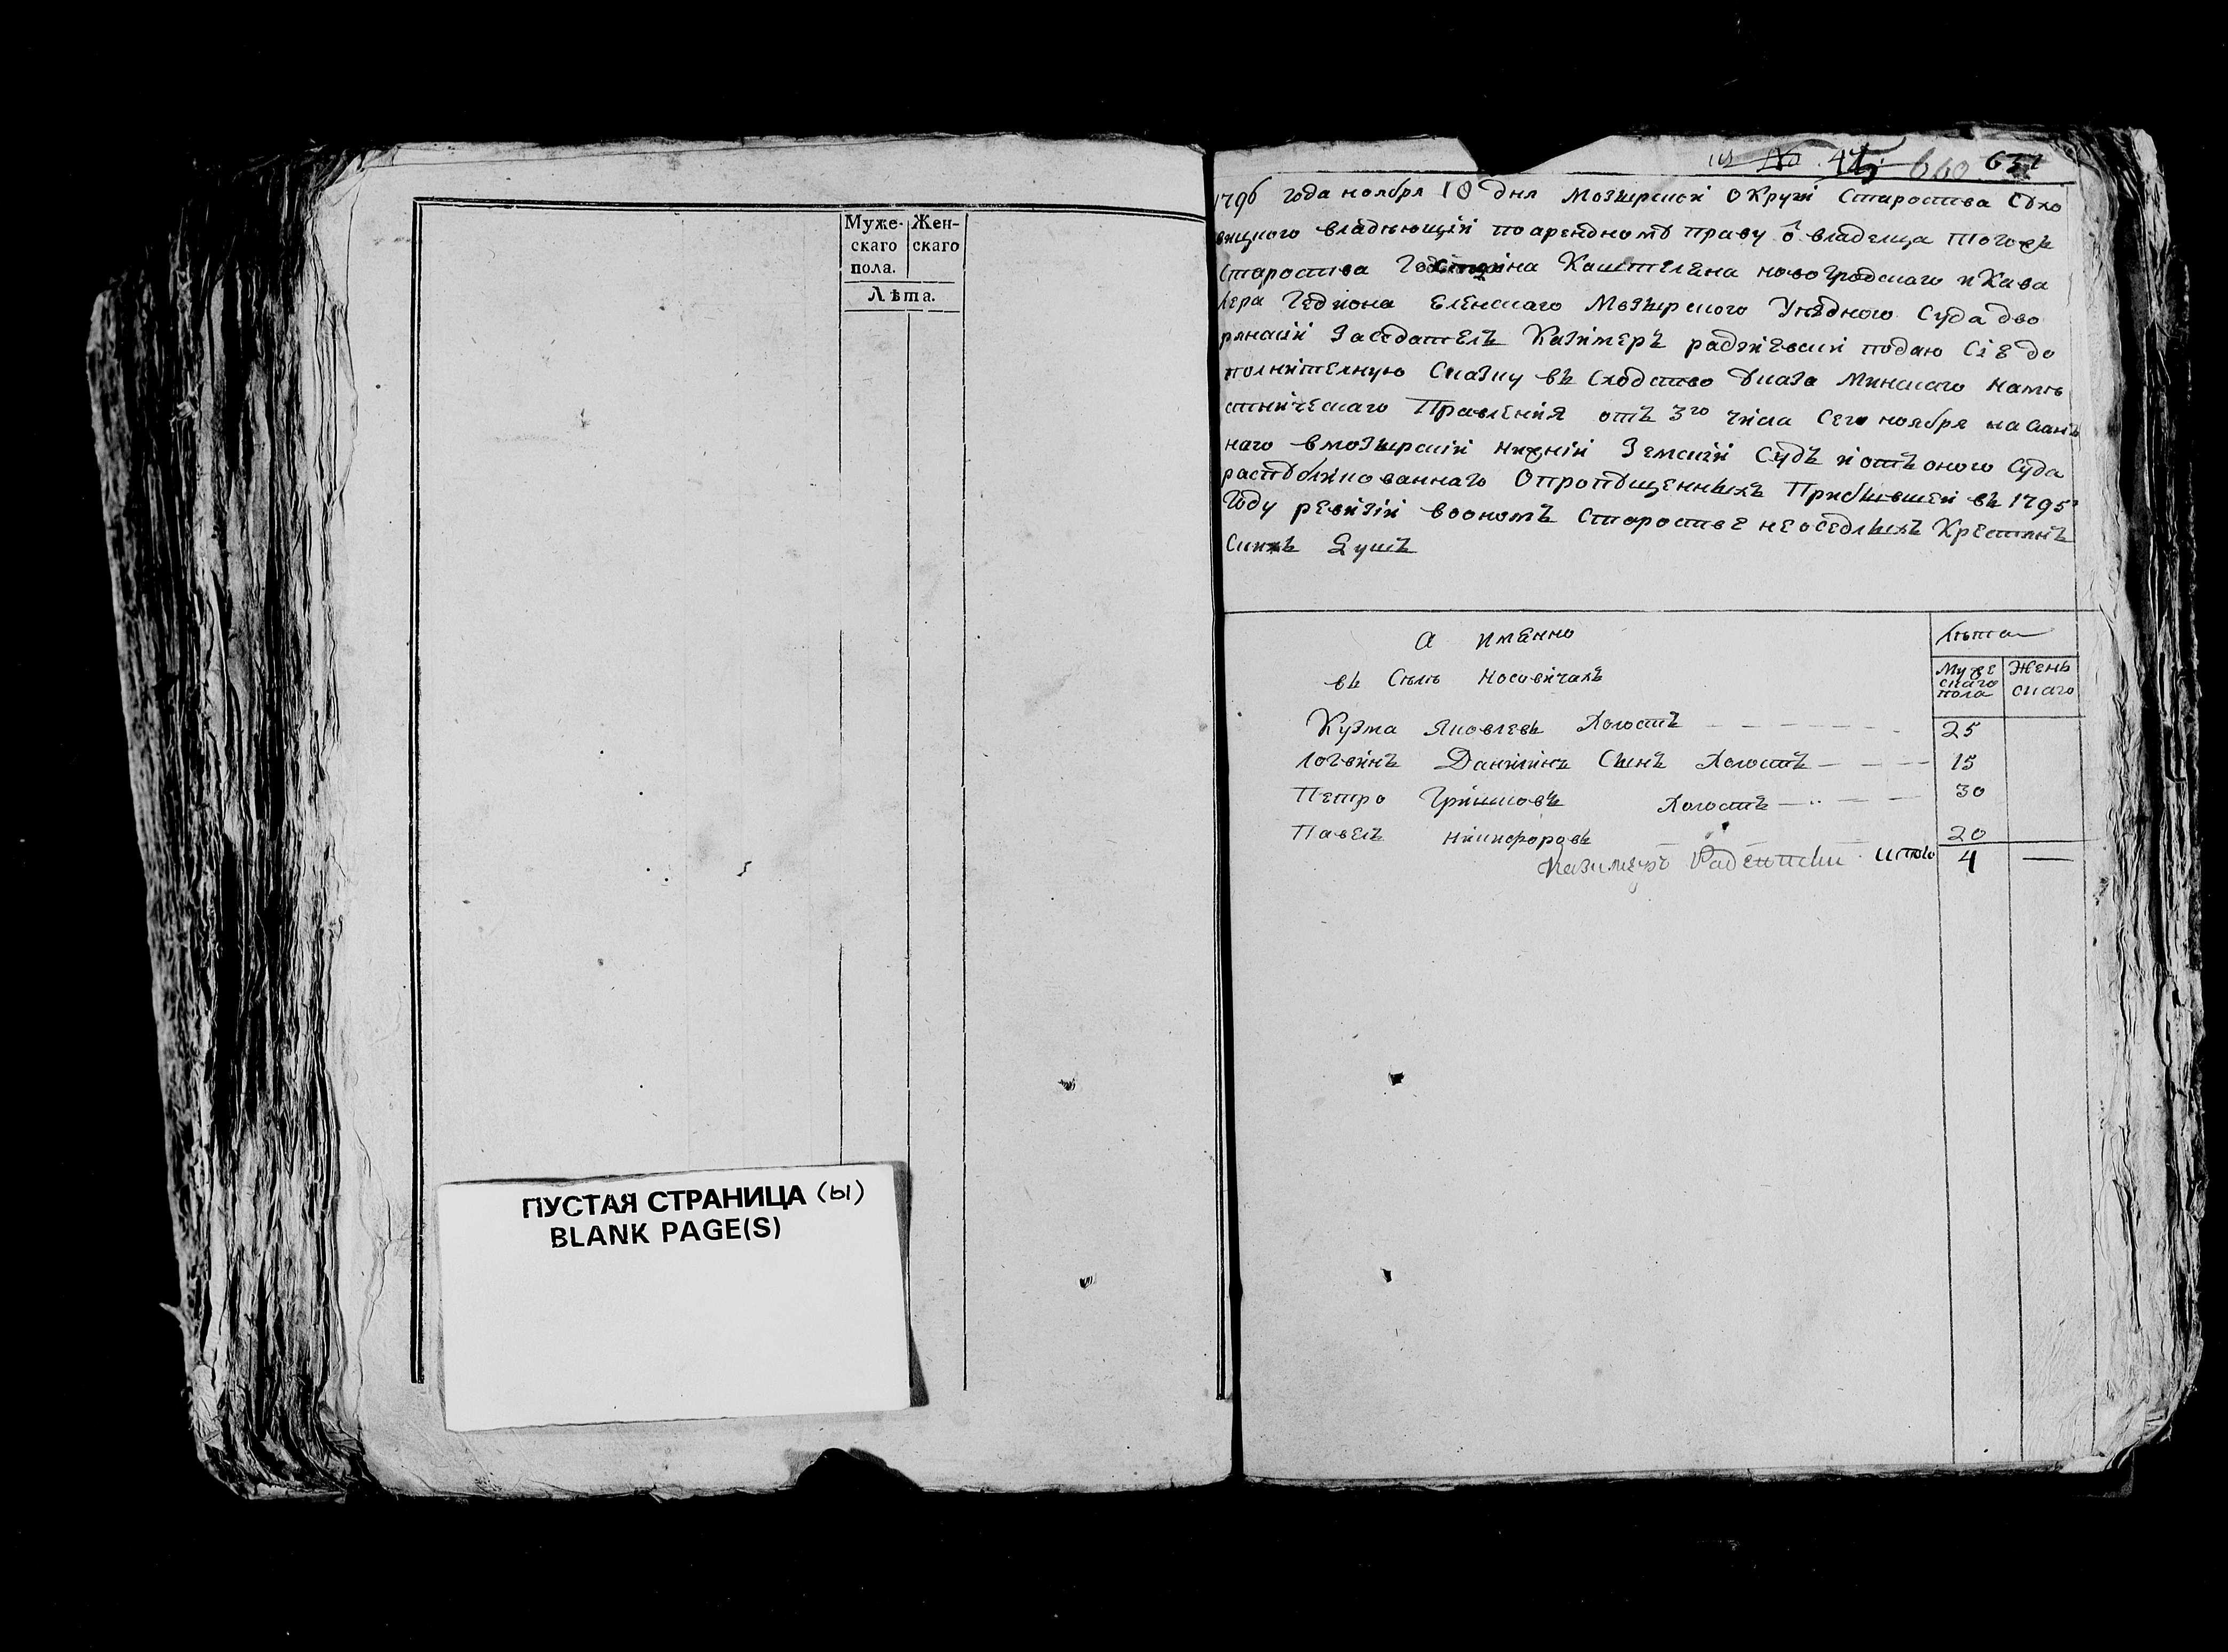 Муже- Жен-
скаго скаго
пола.
Лѣта.
ПУСТАЯ СТРАНИЦА (ы)
BLANK PAGE(S)
660 631
1796 года ноября 10 дня Мозырской Округи Староства Сухо
вицкого владѣющій по арендному праву ѿ владелца тогожъ
Староства Каштеляна новогродскаго и Кава
лера Гедиона Еленскаго Мозырского Уѣздного Суда дво
рянский Заседатель Казимеръ радзиевский подаю Сіе до
полнителную Сказку въ Сходство Указа Минскаго намѣ
стническаго Правления отъ 3го числа Сего ноября на слан
наго вмозырский нижній Земский Судъ и отъ оного Суда
распубликованнаго О пропущенныхъ Прибывшей въ 1795
Году ревизіи воономъ Старостве неоседлыхъ Крестянъ
Сихъ Душъ
а именно
лѣта
въ Селѣ Носовичахъ
Муже Жень
скаго скаго
пола
Кузма Яковлевъ Холостъ 25
Логвинъ Данилинъ Сынъ Холостъ 15
Петро Гришковъ Холостъ 30
Павелъ Никифоровъ 20
Казимеръ итого 4 —